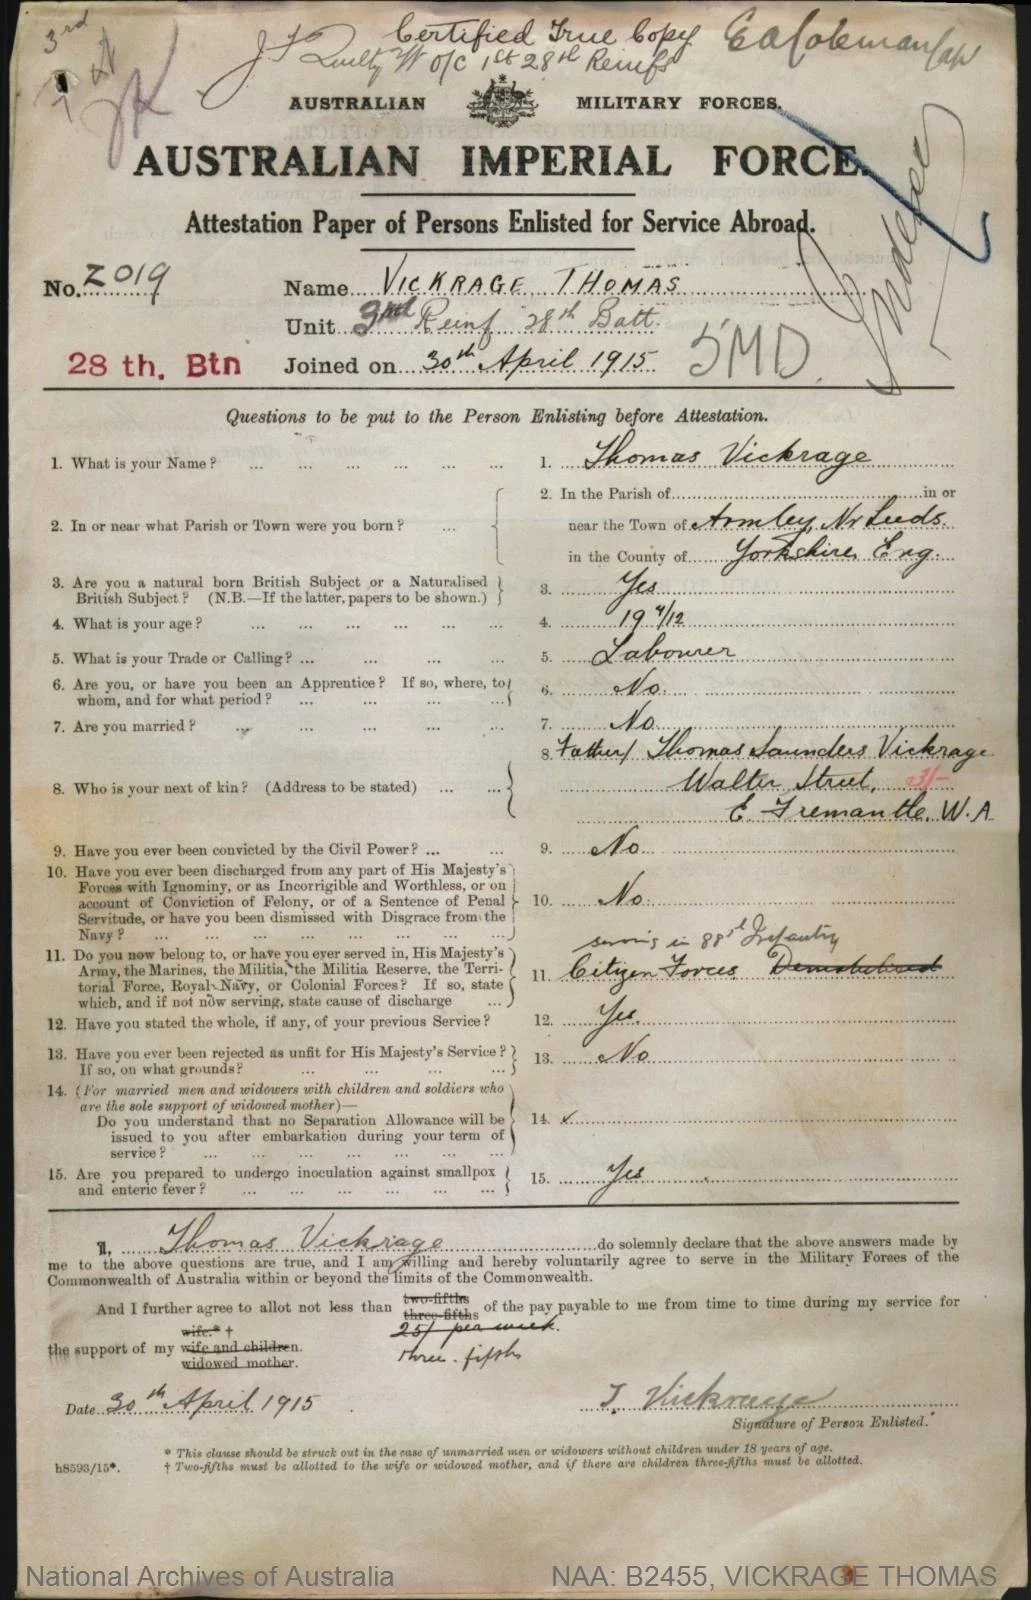 3rd
Certified True Copy E A Coleman Capt
J F Quilty Lt O/C 1st 28th Reinfs
AUSTRALIAN MILITARY FORCES.
AUSTRALIAN IMPERIAL FORCE.
Attestation Paper of Persons Enlisted for Service Abroad.
No. 2019 Name VICKRAGE THOMAS
Unit 3rd Reinf 28th Batt.
28 th. Btn Joined on 30th April 1915 5MD.
Questions to be put to the Person Enlisting before Attestation.
1. What is your Name? ... ... ... ... ... ... 1. Thomas Vickrage
2. In or near what Parish or Town were you born? ... 2. In the Parish of in or
near the Town of Armley, Nr Leeds.
in the County of Yorkshire, Eng.
3. Are you a natural born British Subject or a Naturalised
British Subject? (N.B.—If the latter, papers to be shown.) 3. Yes
4. What is your age? ... ... ... ... ... ... 4. 19 4/12
5. What is your Trade or Calling? ... ... ... ... 5. Labourer
6. Are you, or have you been an Apprentice? If so, where, to
whom, and for what period? ... ... ... ... 6. No.
7. Are you married? ... ... ... ... ... 7. No.
8. Who is your next of kin? (Address to be stated) ... ... 8. Father/ Thomas Saunders Vickrage
Walter Street,
E Fremantle. W.A
9. Have you ever been convicted by the Civil Power? ... ... 9. No
10. Have you ever been discharged from any part of His Majesty's
Forces with Ignominy, or as Incorrigible and Worthless, or on
account of Conviction of Felony, or of a Sentence of Penal
Servitude, or have you been dismissed with Disgrace from the
Navy? ... ... ... ... ... ... ... 10. No.
11. Do you now belong to, or have you ever served in, His Majesty's
Army, the Marines, the Militia, the Militia Reserve, the Terri-
torial Force, Royal Navy, or Colonial Forces? If so, state
which, and if not now serving, state cause of discharge ... 11. serving in 88th Infantry
Citizen Forces
12. Have you stated the whole, if any, of your previous Service? 12. Yes.
13. Have you ever been rejected as unfit for His Majesty's Service?
If so, on what grounds? ... ... ... ... 13. No
14. (For married men and widowers with children and soldiers who
are the sole support of widowed mother)—
Do you understand that no Separation Allowance will be
issued to you after embarkation during your term of
service? ... ... ... ... ... ... 14. ✓
15. Are you prepared to undergo inoculation against smallpox
and enteric fever? ... ... ... ... ... ... 15. Yes
I, Thomas Vickrage do solemnly declare that the above answers made by
me to the above questions are true, and I am willing and hereby voluntarily agree to serve in the Military Forces of the
Commonwealth of Australia within or beyond the limits of the Commonwealth.
And I further agree to allot not less than two-fifths three-fifths of the pay payable to me from time to time during my service for
25/ per week.
wife.* †
the support of my wife and children.
widowed mother.
three-fifths
Date 30th April 1915 T. Vickrage
Signature of Person Enlisted.
* This clause should be struck out in the case of unmarried men or widowers without children under 18 years of age.
h8593/15*. † Two-fifths must be allotted to the wife or widowed mother, and if there are children three-fifths must be allotted.
National Archives of Australia NAA: B2455, VICKRAGE THOMAS